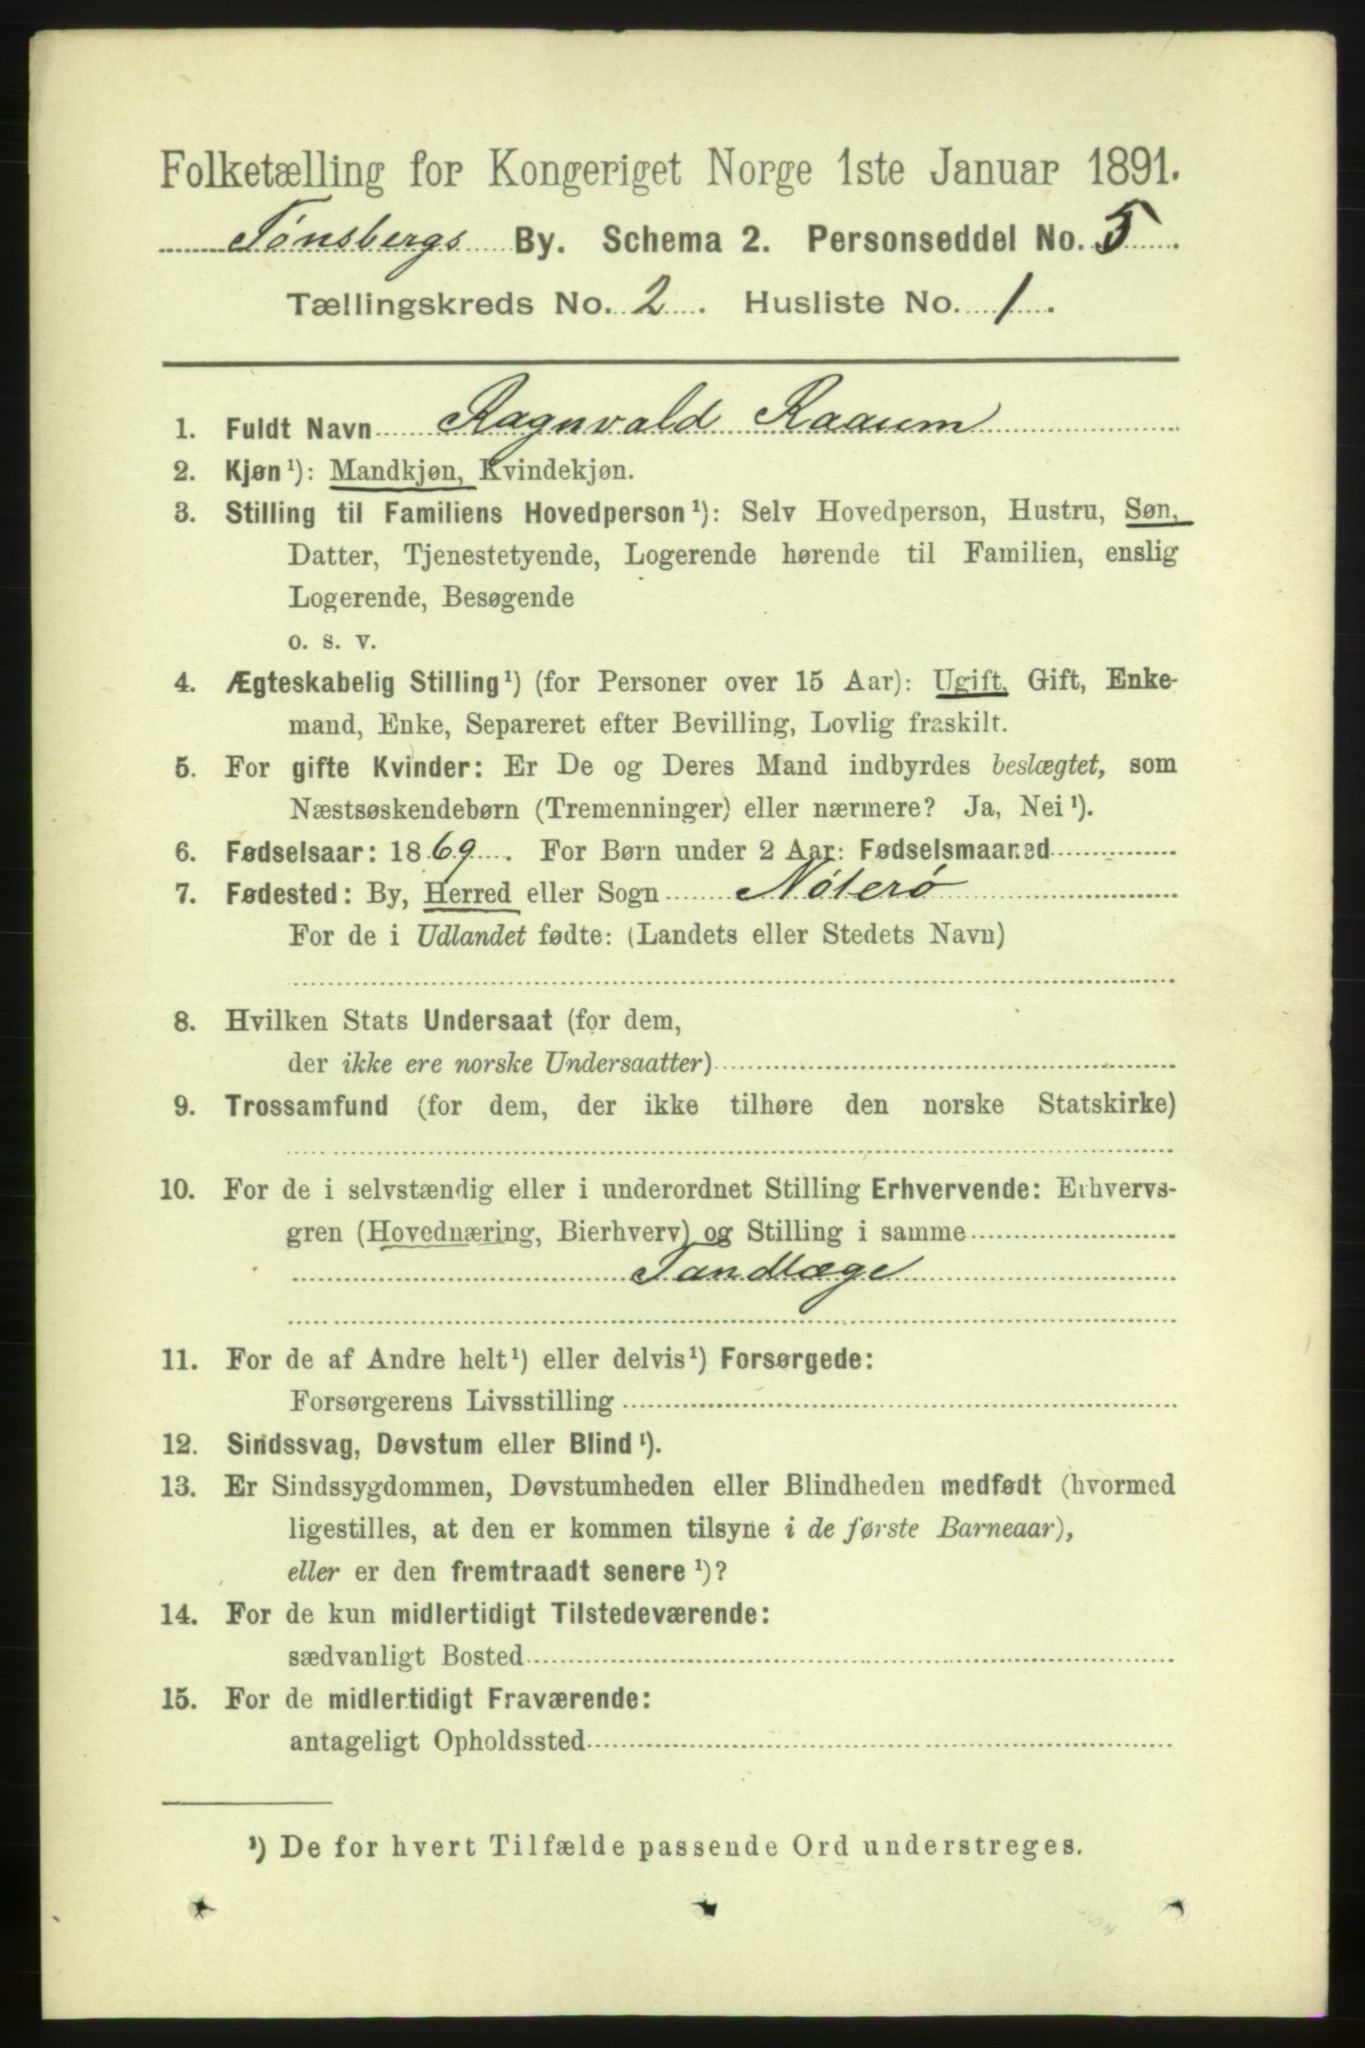 Folketælling for Kongeriget Norge 1ste Januar 1891.
Tønsbergs By. Schema 2. Personseddel No. 5.
Tællingskreds No. 2. Husliste No. 1.
1. Fuldt Navn Ragnvald Raaum
2. Kjøn¹): Mandkjøn, Kvindekjøn.
3. Stilling til Familiens Hovedperson¹): Selv Hovedperson, Hustru, Søn,
Datter, Tjenestetyende, Logerende hørende til Familien, enslig
Logerende, Besøgende
o. s. v.
4. Ægteskabelig Stilling¹) (for Personer over 15 Aar): Ugift, Gift, Enke-
mand, Enke, Separeret efter Bevilling, Lovlig fraskilt.
5. For gifte Kvinder: Er De og Deres Mand indbyrdes beslægtet, som
Næstsøskendebørn (Tremenninger) eller nærmere? Ja, Nei¹).
6. Fødselsaar: 1869. For Børn under 2 Aar: Fødselsmaaned
7. Fødested: By, Herred eller Sogn Nøterø
For de i Udlandet fødte: (Landets eller Stedets Navn)
8. Hvilken Stats Undersaat (for dem,
der ikke ere norske Undersaatter)
9. Trossamfund (for dem, der ikke tilhøre den norske Statskirke)
10. For de i selvstændig eller i underordnet Stilling Erhvervende: Erhvervs-
gren (Hovednæring, Bierhverv) og Stilling i samme
Tandlæge
11. For de af Andre helt¹) eller delvis¹) Forsørgede:
Forsørgerens Livsstilling
12. Sindssvag, Døvstum eller Blind¹).
13. Er Sindssygdommen, Døvstumheden eller Blindheden medfødt (hvormed
ligestilles, at den er kommen tilsyne i de første Barneaar),
eller er den fremtraadt senere¹)?
14. For de kun midlertidigt Tilstedeværende:
sædvanligt Bosted
15. For de midlertidigt Fraværende:
antageligt Opholdssted
¹) De for hvert Tilfælde passende Ord understreges.